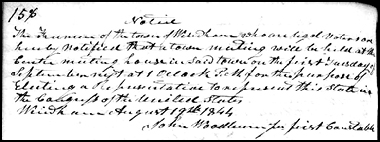 158
Notice
The Freemen of the town of Windham who are legal Voters are
hereby notified that a town meeting will be held at the
Center meeting house in said town on the first Tuesday of
September next at 1 O Clock P.M for the purpose of
Electing a Representative to represent this State in
the Congress of the United States
Windham August 19th 1844
John first Constable